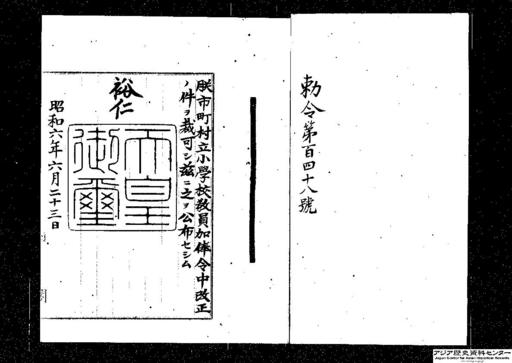 勅令第百四十八號
朕市町村立小學校敎員加俸令中改正
ノ件ヲ裁可シ茲ニ之ヲ公布セシム
裕仁
天皇御璽
昭和六年六月二十三日
アジア歴史資料センター
Japan Center for Asian Historical Records